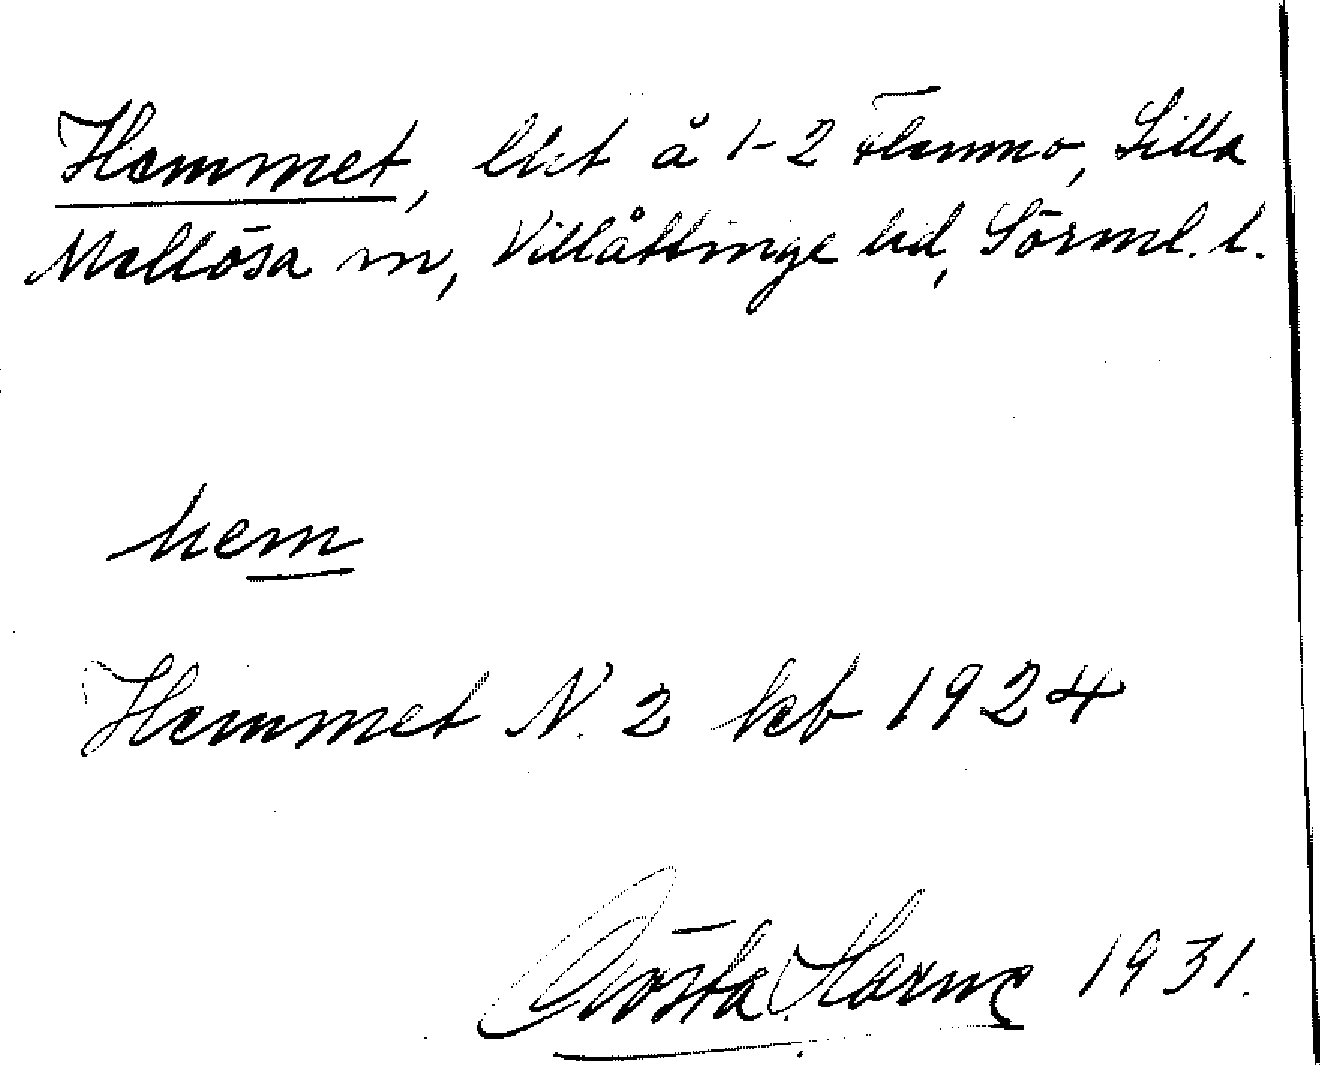 Hemmet, lht å 1-2 Flenmo, Lilla
Mellösa sn, Villåttinge hd, Sörml. l.
hem
Hemmet N. 2 kb 1924
Gösta Harne 1931.